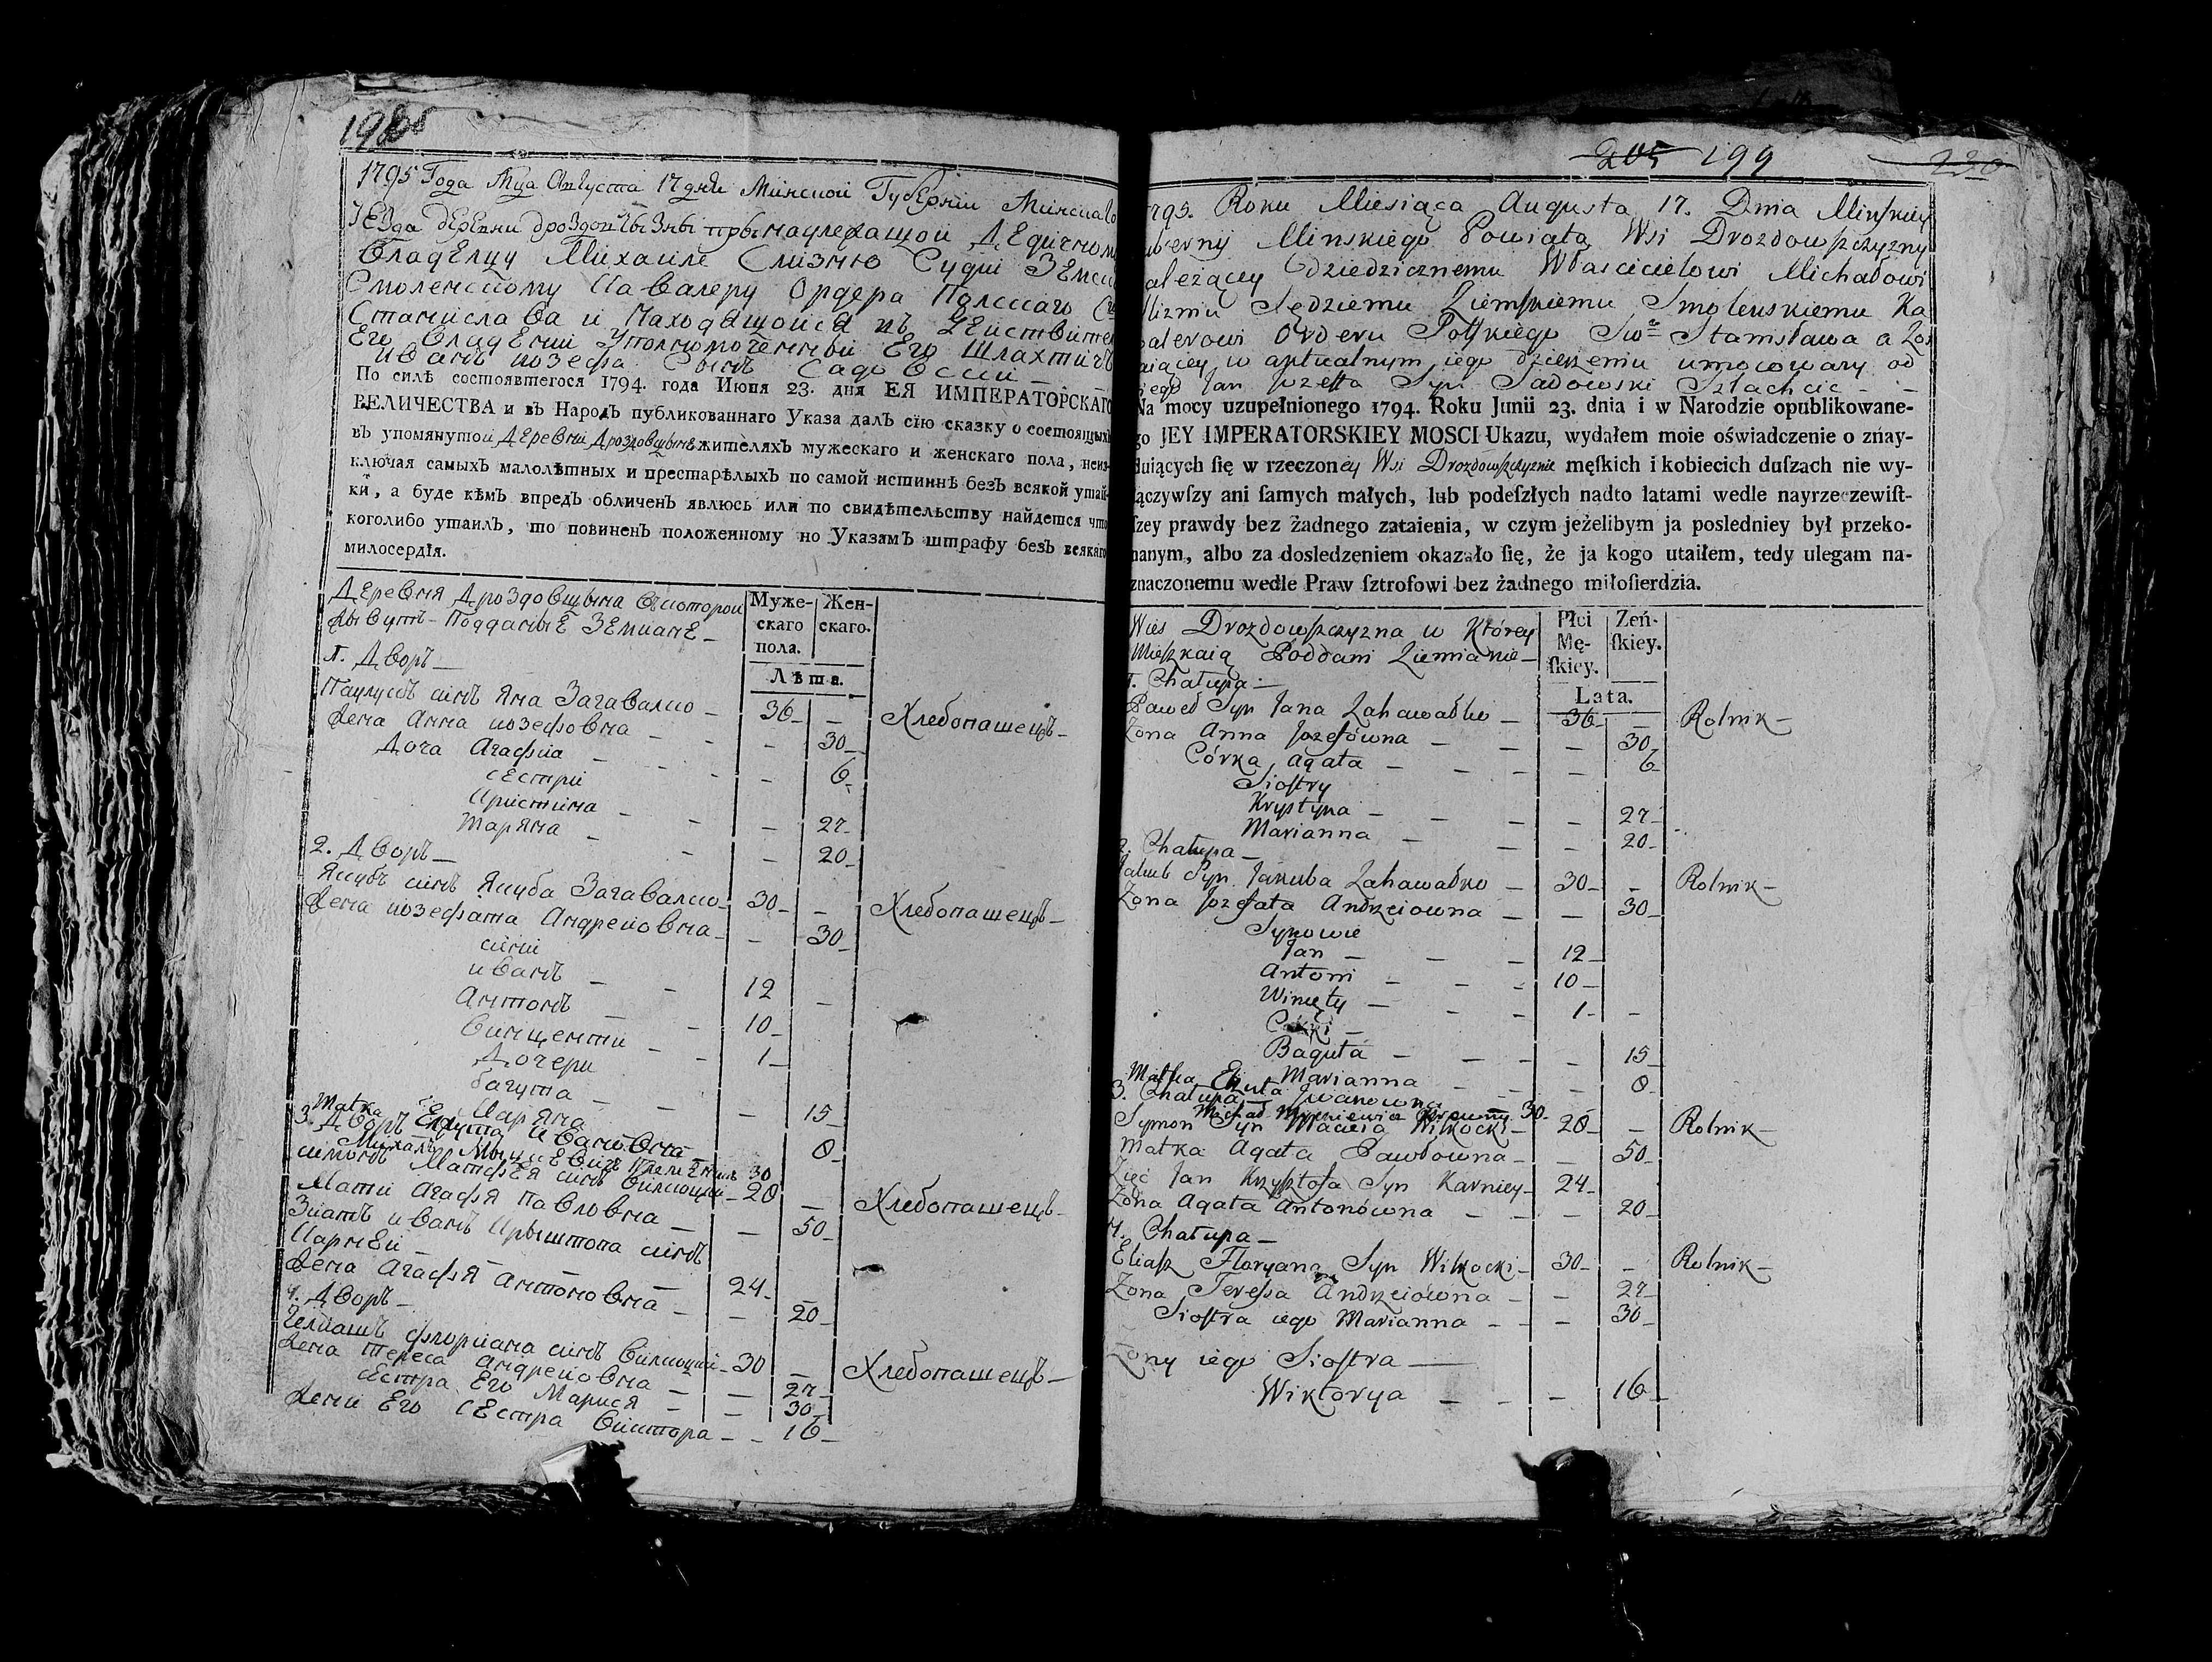 198
1795 Года Мца Августа 17 дня Минской Губернiи Минскаго
Уезда деревни дроздовчызны прынадлежащой Дедичному
Владелцу Михаиле Слизню Судiи Земск
Смоленскому Кавалеру Ордера Полскаго С
Станислава и находящойся въ Действите
Его Владенiи Уполномоченный Его Шлахтичъ
Иванъ иозефа Сынъ Садовскiи
По силѣ состоявшегося 1794. года Июня 23. дня ЕЯ ИМПЕРАТОРСКАГО
ВЕЛИЧЕСТВА и въ Народъ публикованнаго Указа далъ сїю сказку о состоящихъ
въ упомянутой Деревни Дроздовщыне жителяхъ мужескаго и женскаго пола, неиз-
ключая самыхъ малолѣтныхъ и престарѣлыхъ по самой истиннѣ безъ всякой утай-
ки, а буде кѣмъ впредъ обличенъ явлюсь или по свидѣтельству найдется что
коголибо утаилъ, то повиненъ положенному но Указамъ штрафу безъ всякаго
милосердїя.
Деревня Дроздовщына Вкоторои
Жывутъ Подданые Земяне
Муже-скаго пола. Жен-скаго.
Лѣта.
1. Дворъ
Паулюсъ синъ Яна Загавалко 36 Хлебопашецъ
Жена Анна иозефовна 30
Доча Агафiа 6
сестри
Кристина 27
Марянa 20
2. Дворъ
Якубъ синъ Якуба Загавалко 30 Хлебопашецъ
Жена иозефата Андреиовна 30
сини
иванъ 12
Антонъ 10
Винценти 1
Дочери
багута 15
Марянa 8
Matka Екута Ивановна
3. Дворъ
Михалъ 30
симонъ Матфея синъ Вилкоцкiй 28 Хлебопашецъ
Мати Агафя Павловна 50
Зiатъ иванъ Крыштопа синъ
Карней 24
Жена Агафя Антоновна 20
4. Дворъ
Гелiашъ флориана синъ Вилкоцкiй 30 Хлебопашецъ
Жена Тереса Андреиовна 27
сестра Его Марися 30
Жени Его сестра Виктора 16
205 199
220
1795. Roku Miesiąca Augusta 17. Dnia Minskiey
uberny Minskiego Powiatu Wsi Drozdowszczyzny
ależącey Dziedzicznemu Włascicielowi Michałowi
Slizniu Sędziemu Ziemskiemu Smolenskiemu Ka
walerowi Orderu Polskiego Swo Stanisława a Zos
taiącey w aktualnym iego dzierzeniu umocowany od
niego Jan Jozeffa Syn Sadowski Szlachcic
Na mocy uzupełnionego 1794. Roku Junii 23. dnia i w Narodzie opublikowane-
go JEY IMPERATORSKIEY MOSCI Ukazu, wydałem moie oświadczenie o znay-
duiących ſię w rzeczoney Wsi Drozdowszczyznie męſkich i kobiecich duſzach nie wy-
łączywſzy ani ſamych małych, lub podeſzłych nadto latami wedle nayrzeczewiſt-
ſzey prawdy bez żadnego zataienia, w czym jeżelibym ja posledniey był przeko-
nanym, albo za dosledzeniem okazało ſię, że ja kogo utaiłem, tedy ulegam na-
znaczonemu wedle Praw ſztrofowi bez żadnego miłoſierdzia.
Wies Drozdowszczyzna w Którey
Mieszkaią Poddani Ziemianie
Płci Mę-ſkiey. Zeń-ſkiey.
Lata.
1. Chałupa
Paweł Syn Jana Zahawałko 36 Rolnik
Zona Anna Jozefówna 30
Córka Agata 6
Siostry
Krystyna 27
Marianna 20
2. Chałupa
Jakub Syn Jakuba Zahawałko 30 Rolnik
Zona Jozefata Andrzeiowna 30
Synowie
Jan 12
Antoni 10
Winęty 1
Córki
Baguta 15
Marianna 8
Matka Ekuta Jwanowna
3. Chałupa
Michał 30
Symon Syn Macieia Wilkocki 28 Rolnik
Matka Agata Pawłowna 50
Zięć Jan Krzysztofa Syn Karniey 24
Zona Agata Antonówna 20
4. Chałupa
Eliasz Floryana Syn Wilkocki 30 Rolnik
Zona Teressa Andrzeiówna 27
Siostra iego Marianna 30
Zony iego Siostra
Wiktorya 16